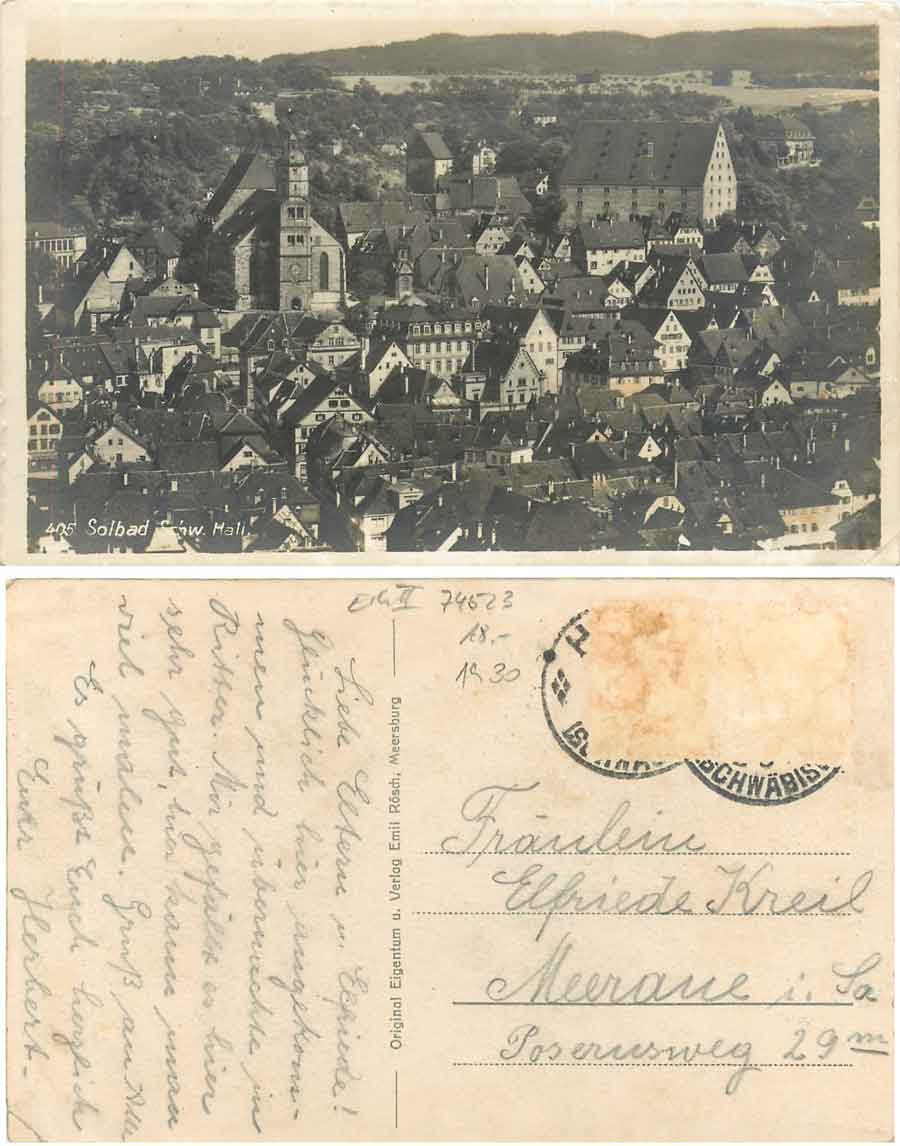 405 Solbad Schw. Hall.
Erh II 74523
18.-
1930
SCHWÄBISC
Liebe Eltern u. Elfriede!
Glücklich hier angekom-
men und übernachte in
Ritter. Mir gefällt es hier
sehr gut, hier kann man
viel malen. Gruß an Alle
Es grüßt Euch herzlich
Euer Herbert-
Original Eigentum u. Verlag Emil Rösch, Meersburg
Fräulein
Elfriede Kreil
Meerane i. Sa
Poserusweg 29 m